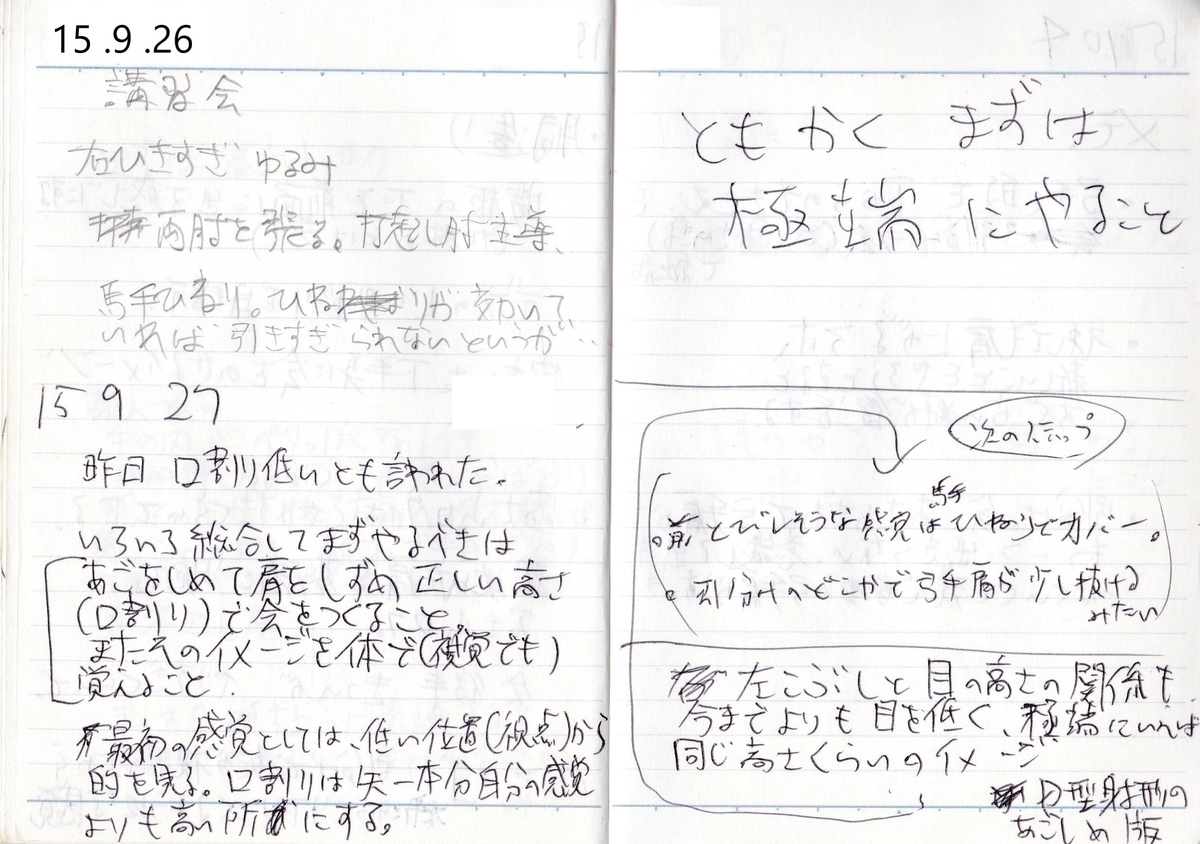 15 .9 .26
講習会
右ひきすぎ ゆるみ
両肘を張る。打起し肘主導、
馬手ひねり。ひねりが効いて
いれば 引きすぎられないというか…
15 9 27
昨日 口割り低いとも言われた。
いろいろ総合してまずやるべきは
あごをしめて肩をしずめ 正しい高さ
(口割り)で会をつくること。
またそのイメージを体で(視覚でも)
覚えること.
最初の感覚としては、低い位置(視点)から
的を見る。口割りは矢一本分自分の感覚
よりも高い所にする。
ともかく まずは
極端にやること
次のステップ
前とびしそうな感覚は馬手ひねりでカバー。
引分けのどこかで弓手肩が少し抜ける
みたい
左こぶしと目の高さの関係も
今までよりも目を低く、極端にいえば
同じ高さくらいのイメージ
D型射形の
あごしめ版